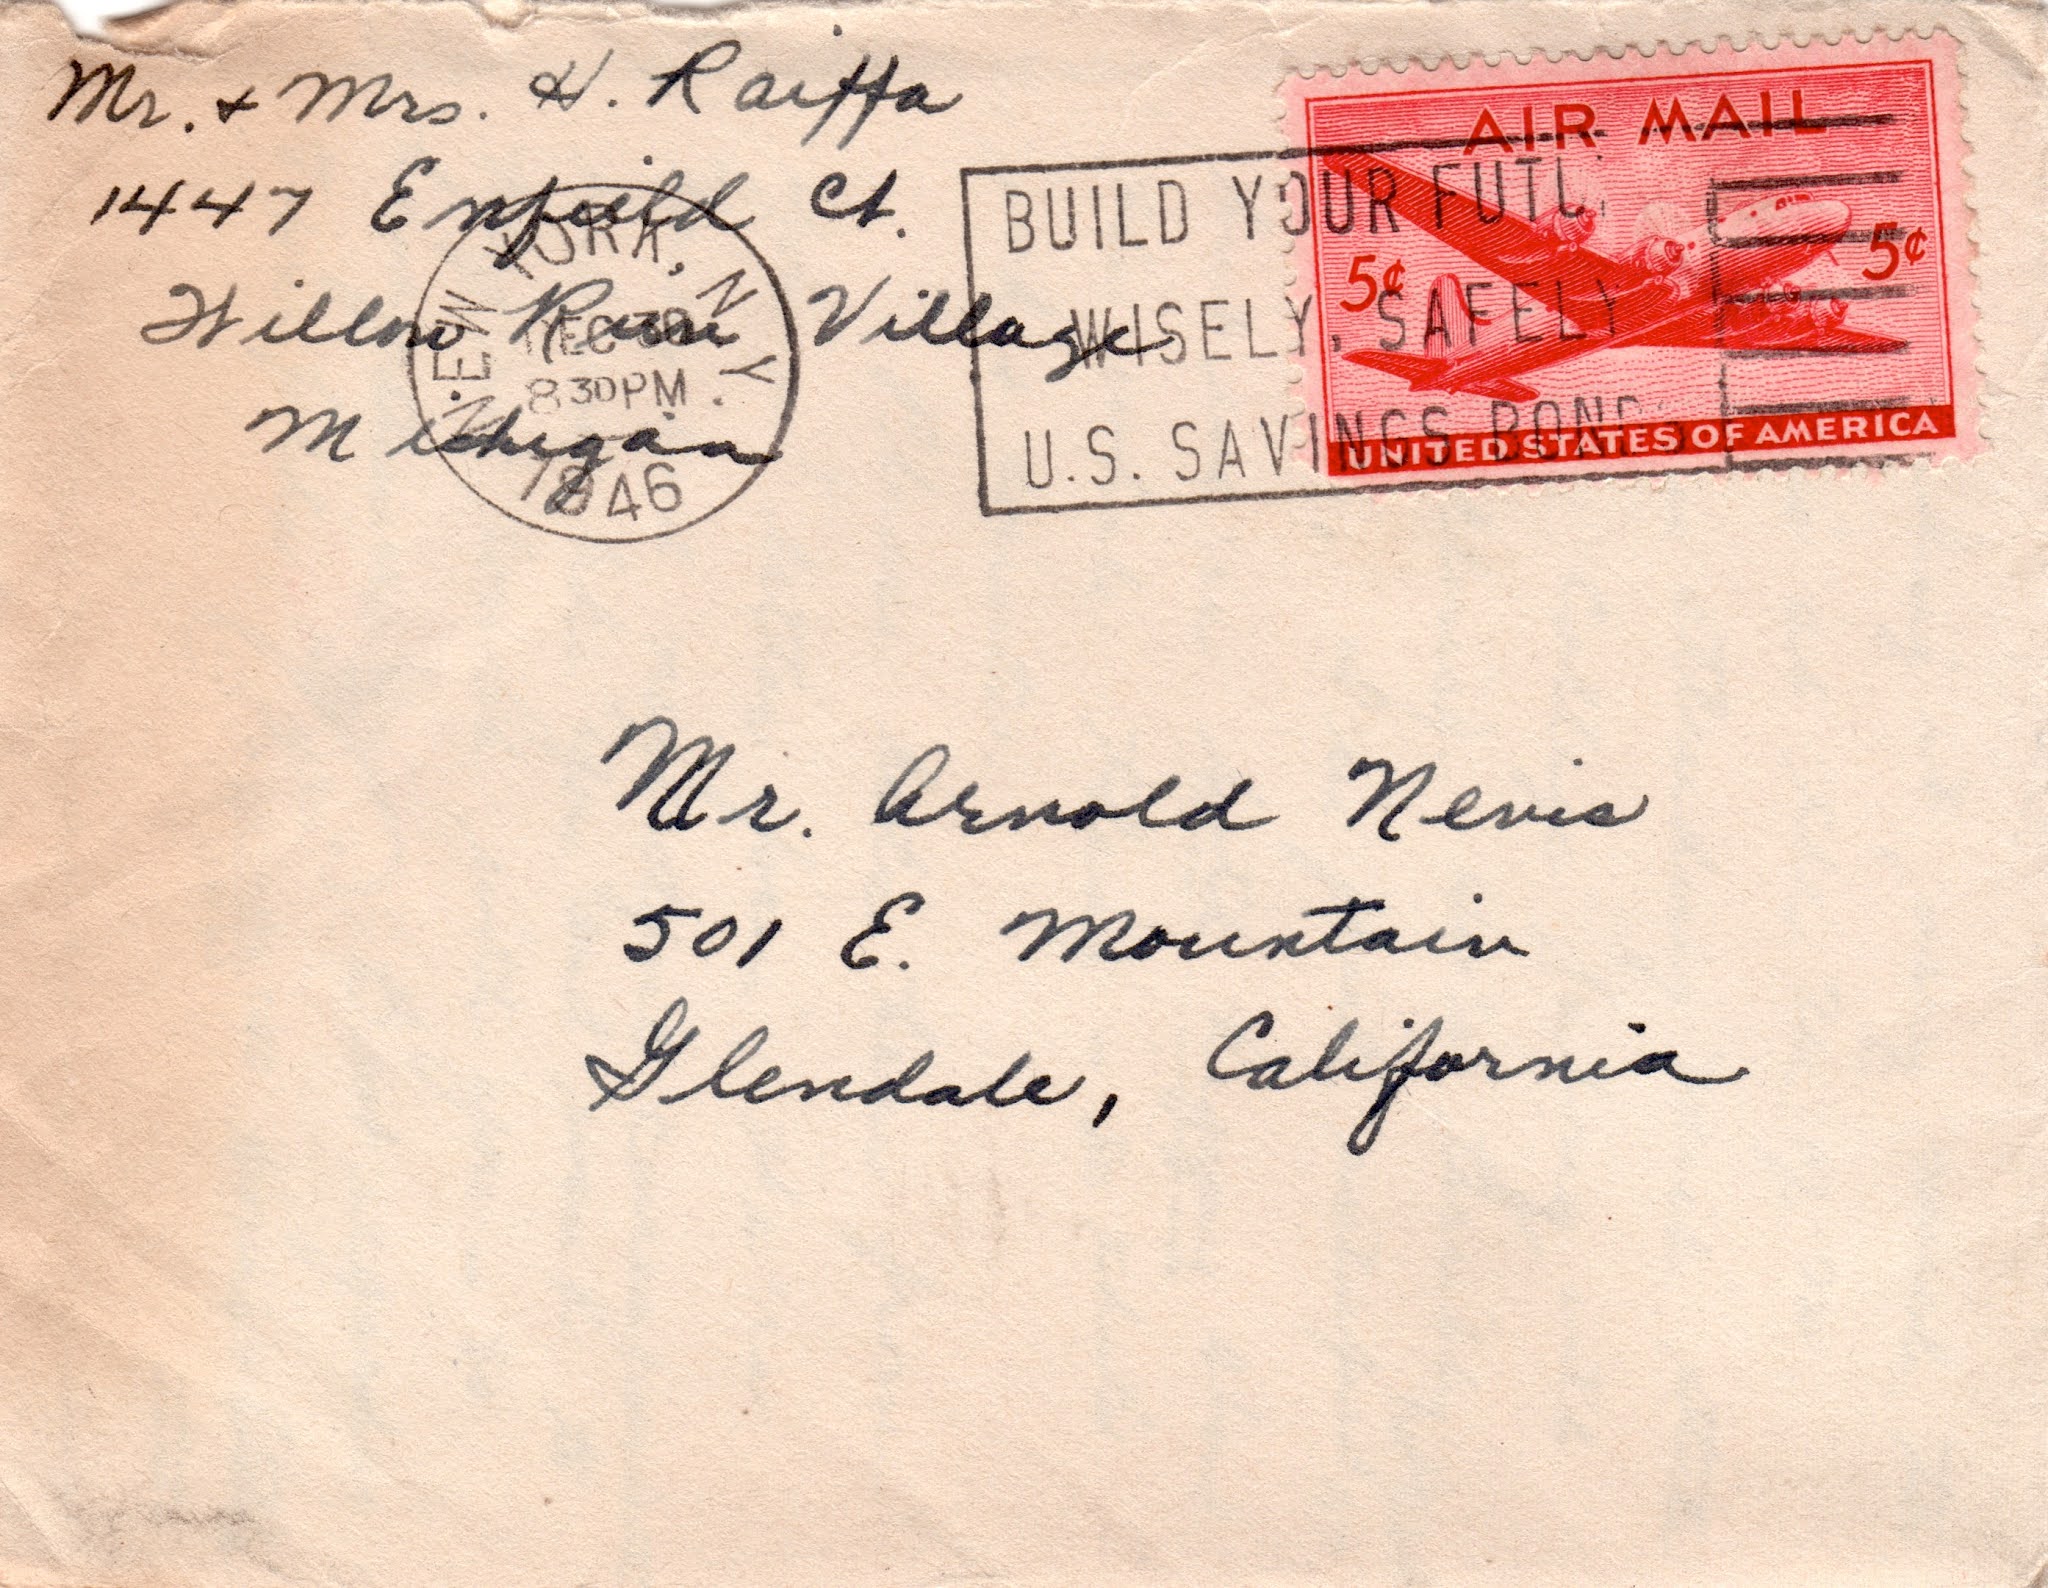 Mr. & Mrs. H. Raiffa
1447 Enfield Ct.
Willow Run Village
Michigan
NEW YORK, N.Y.
DEC 30
8 30 PM
1946
BUILD YOUR FUTU
WISELY, SAFELY
U.S. SAVINGS BONDS
AIR MAIL
5¢ 5¢
UNITED STATES OF AMERICA
Mr. Arnold Nevis
501 E. Mountain
Glendale, California